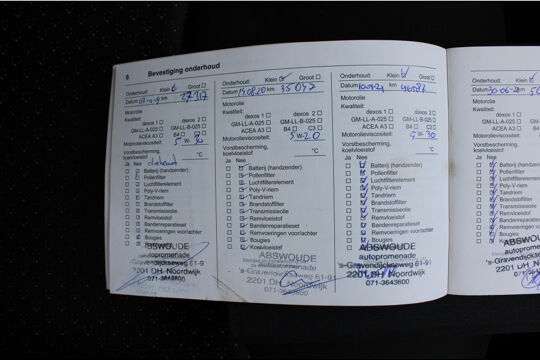 6 Bevestiging onderhoud
Onderhoud: Klein Groot
Datum km
Motorolie
Kwaliteit:
dexos 1 dexos 2
GM-LL-A-025 GM-LL-B-025
ACEA A3 B4 C3
Motorolieviscositeit:
Vorstbescherming, koelvloeistof °C
Ja Nee
Batterij (handzender)
Pollenfilter
Luchtfilterelement
Poly-V-riem
Tandriem
Brandstoffilter
Transmissieolie
Remvloeistof
Bandenreparatieset
Remvoeringen voor/achter
Bougies
ABSWOUDE
autopromenade
's-Gravendijckseweg 61-91
2201 DH Noordwijk
071-3643600
Onderhoud: Klein Groot
Datum km 35047
Motorolie
Kwaliteit:
dexos 1 dexos 2
GM-LL-A-025 GM-LL-B-025
ACEA A3 B4 C3
Motorolieviscositeit: 5W-20
Vorstbescherming,
koelvloeistof °C
Ja Nee
Batterij (handzender)
Pollenfilter
Luchtfilterelement
Poly-V-riem
Tandriem
Brandstoffilter
Transmissieolie
Remvloeistof
Bandenreparatieset
Remvoeringen voor/achter
Bougies
Koelvloeistof
ABSWOUDE
autopromenade
's-Gravendijckseweg 61-91
2201 DH Noordwijk
071-3643600
Onderhoud: Klein Groot
Datum km
Motorolie
Kwaliteit:
dexos 1 dexos 2
GM-LL-A-025 GM-LL-B-025
ACEA A3 B4 C3
Motorolieviscositeit:
Vorstbescherming,
koelvloeistof °C
Ja Nee
Batterij (handzender)
Pollenfilter
Luchtfilterelement
Poly-V-riem
Tandriem
Brandstoffilter
Transmissieolie
Remvloeistof
Bandenreparatieset
Remvoeringen voor/achter
Bougies
Koelvloeistof
ABSWOUDE
autopromenade
's-Gravendijckseweg 61-91
2201 DH Noordwijk
071-3643600
Onderhoud:
Datum 30-06-
Motorolie
Kwaliteit:
GM-LL-A-025
ACEA A3
Motorolieviscositeit:
Vorstbescherming,
koelvloeistof
Ja Nee
Batterij (handzender)
Pollenfilter
Luchtfilterelement
Poly-V-riem
Tandriem
Brandstoffilter
Transmissieolie
Remvloeistof
Bandenreparatieset
Remvoeringen
Bougies
ABSWOU
autoprom
's-Gravendijck
2201 DH N
071-364